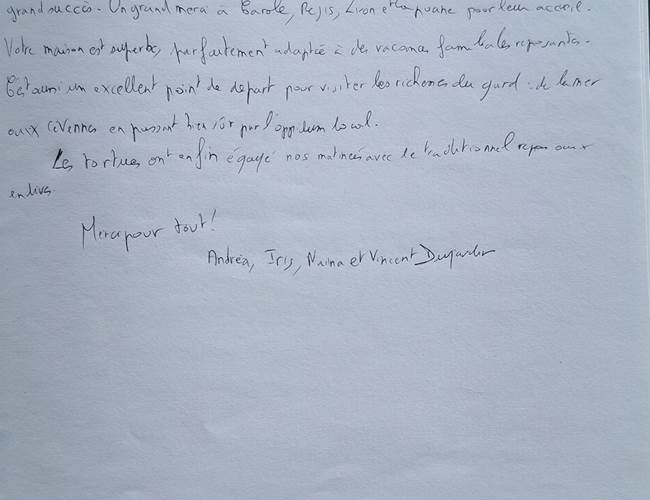 grand succès. Un grand merci à Carole, Régis, Liron et pour leur accueil.
Votre maison est superbe, parfaitement adaptée à des vacances familiales reposantes.
C'est aussi un excellent point de départ pour visiter les richesses du gard : de la mer
aux cévennes en passant bien sûr par l'oppidum local.
Les tortues ont enfin égayé nos matinées avec le traditionnel repas aux
endives.
Merci pour tout !
Andréa, Iris, Naïna et Vincent